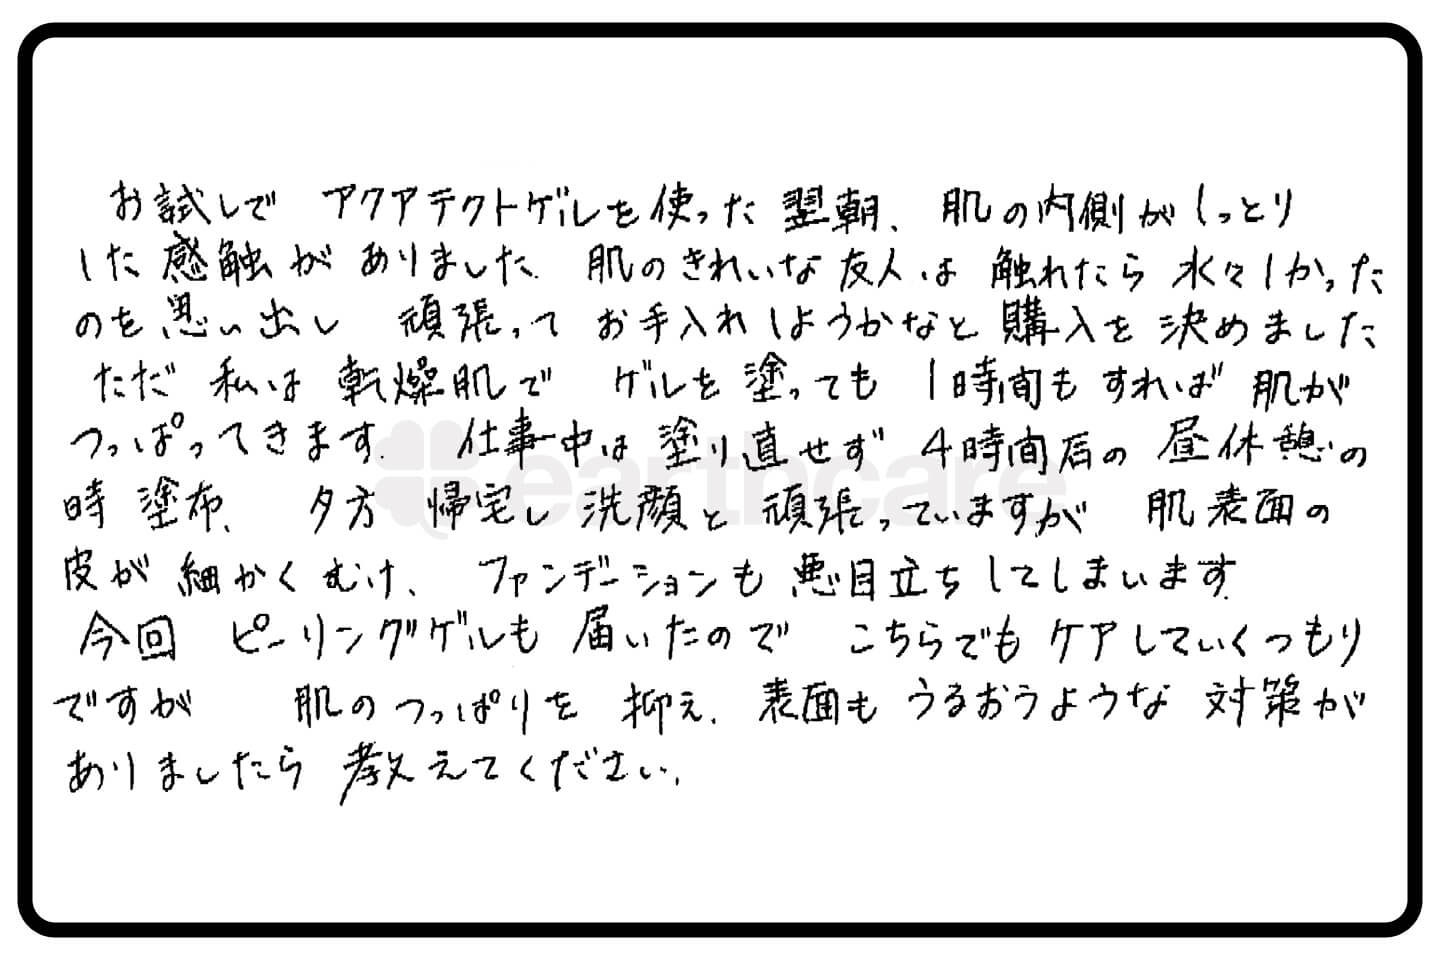 お試しで アクアテクトゲルを使った翌朝、肌の内側がしっとり
した感触がありました. 肌のきれいな友人は 触れたら 水々しかった
のを思い出し 頑張って お手入れしようかなと 購入を決めました
ただ 私は 乾燥肌で ゲルを塗っても 1時間もすれば 肌が
つっぱってきます. 仕事中は塗り直せず 4時間后の昼休憩の
時 塗布、 夕方 帰宅し 洗顔と 頑張っていますが 肌表面の
皮が細かくむけ、 ファンデーションも悪目立ちしてしまいます.
今回 ピーリングゲルも 届いたので こちらでもケアしていくつもり
ですが 肌のつっぱりを 抑え. 表面もうるおうような 対策が
ありましたら 教えてください.
earthcare